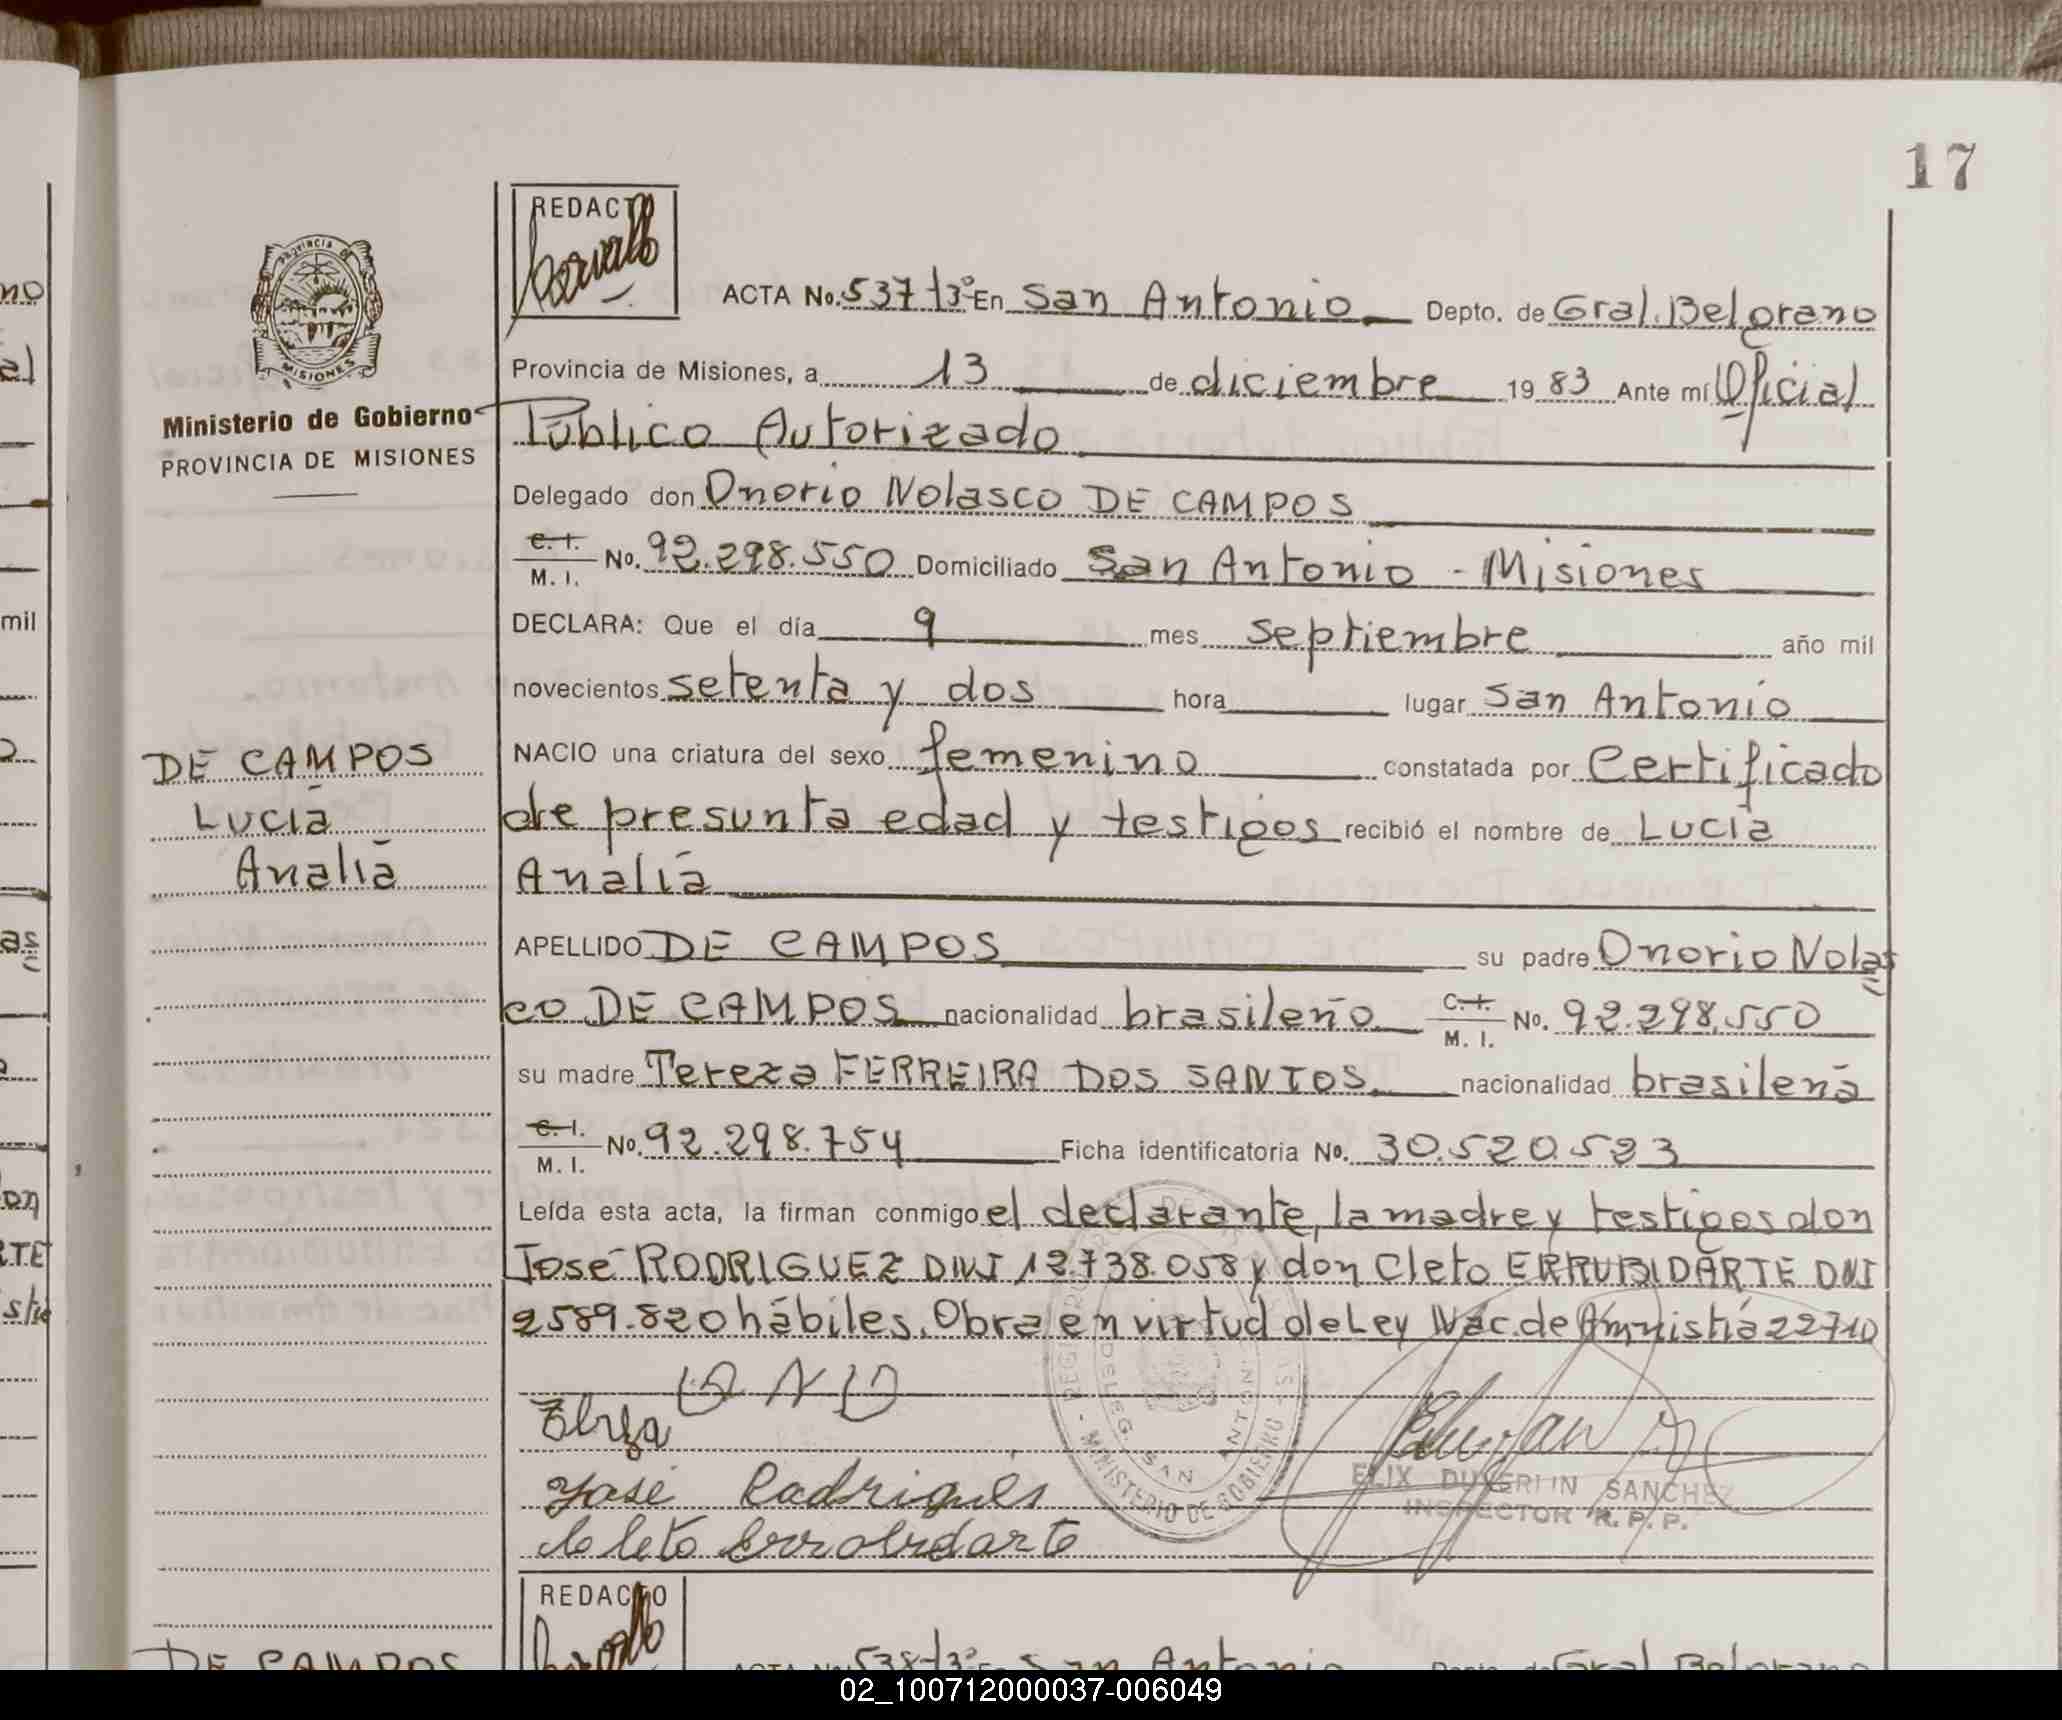 17
REDACTO
PROVINCIA DE
MISIONES
ACTA No. 537 t3º En San Antonio Depto. de Gral. Belgrano
Provincia de Misiones, a 13 de diciembre 19 83 Ante mí Oficial
Ministerio de Gobierno
PROVINCIA DE MISIONES
Público Autorizado
Delegado don Onorio Nolasco DE CAMPOS
C. I.
M. I. No. 92.298.550 Domiciliado San Antonio - Misiones
DECLARA: Que el día 9 mes septiembre año mil
novecientos setenta y dos hora lugar San Antonio
DE CAMPOS
Lucia
Analia
NACIO una criatura del sexo femenino constatada por Certificado
de presunta edad y testigos recibió el nombre de Lucia
Analia
APELLIDO DE CAMPOS su padre Onorio Nolas
co DE CAMPOS nacionalidad brasileño C. I. M. I. No. 92.298.550
su madre Tereza FERREIRA DOS SANTOS nacionalidad brasileña
C. I.
M. I. No. 92.298.754 Ficha identificatoria No. 30.520.523
Leída esta acta, la firman conmigo el declarante, la madre y testigos don
José RODRIGUEZ DNI 12.738.058 y don Cleto ERRUBIDARTE DNI
2589.820 hábiles. Obra en virtud de Ley Nac. de Amnistia 22710
José Rodrigués
Cleto Errobidarte
MINISTERIO DE GOBIERNO
DELEG. SAN ANTONIO
ELIX DUVERLIN SANCHEZ
INSPECTOR R. P. P.
REDACTO
DE CAMPOS
ACTA No. 538 t3º En San Antonio Depto. de Gral Belgrano
no
al
mil
as
on
RTE
02_100712000037-006049